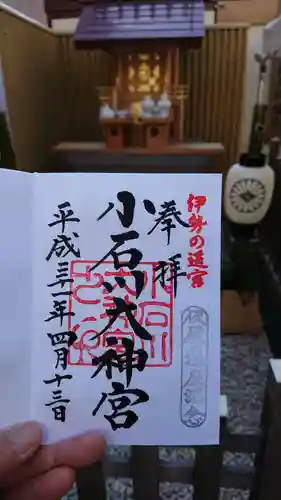 伊勢の遥宮
奉拝
小石川大神宮
平成三十一年四月十三日